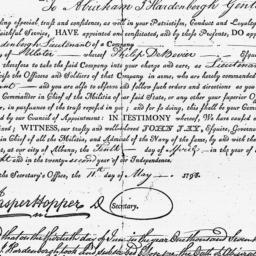 To Abraham T. Hardenbergh Gent
ing especial trust and confidence, as well in your Patriotism, Conduct and Loyalty
AITHFUL SERVICE, HAVE appointed and constituted, and by these Presents, DO ap
denbergh Lieutenant of a Company
of Militia whereof Esquire
therefore to take the said Company into your charge and care, as Lieutenant
se the Officers and Soldiers of that Company in arms, who are hereby commanded
and you are also to observe and follow such orders and directions as you
Commander in Chief of the Militia of our said State, or any other your Superior Of
r, in pursuance of the trust reposed in you; and for so doing, this shall be your Comm
d by our Council of Appointment: IN TESTIMONY whereof, We have caused o
nto affixed: WITNESS, our trusty and well beloved JOHN JAY, Esquire, Governor
in Chief of all the Militia, and Admiral of the Navy of the same, by and with the
at our city of Albany, the day of April in the year of
ht and in the twenty second year of our Independence.
the Secretary's Office, the 11th day of May 1798.
asper Hopper D Secretary.
that on the day of June in the year One thousand Seven
Hardenbergh took and subscribed the Oath of